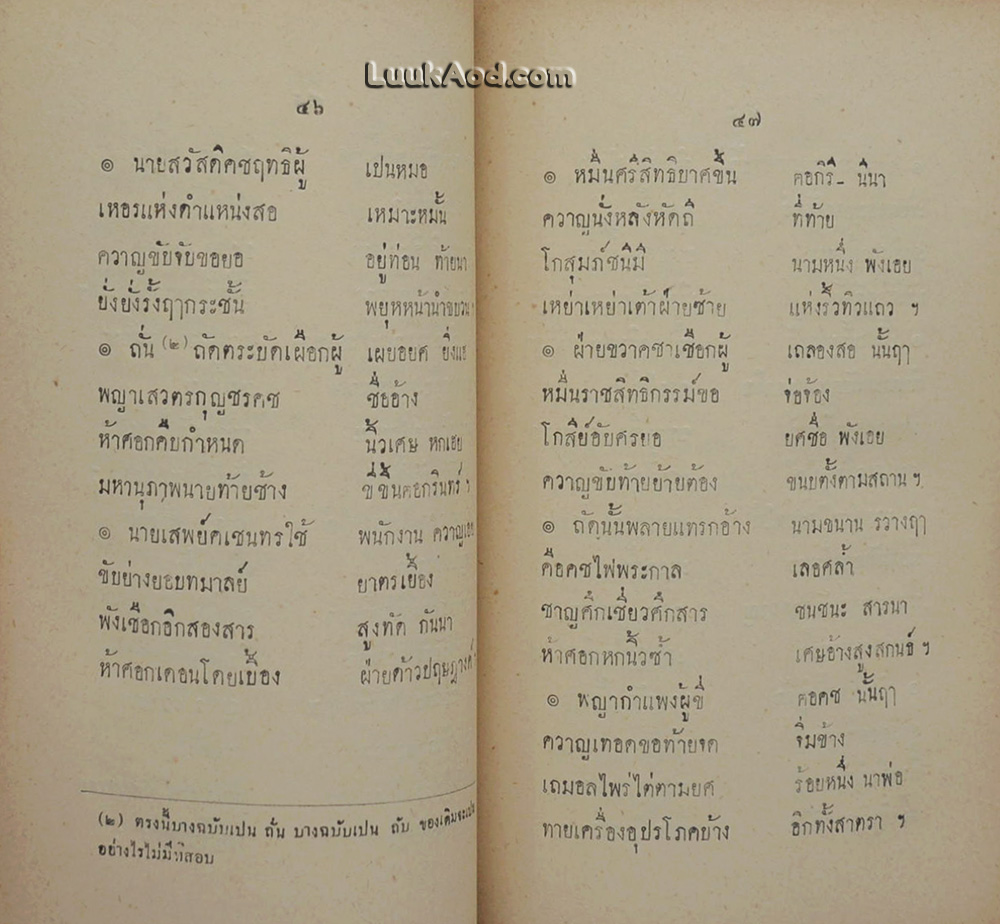 LuukAod.com
๔๖
๏ นายสวัสดิคชฤทธิผู้ เปนหมอ
เหอรแห่งตำแหน่งสอ เหมาะหมั้น
ควาญขับจับขอยอ อยู่ท่อน ท้ายนา
ยั่งยั่งรั้งฤๅกระชั้น พยุหหน้านำขบวน ฯ
๏ ถั่น (๒) ถัดตระบัดเผือกผู้ เผยอยศ ยิ่งแฮ
พญาเสวตรกุญชรคช ชื่ออ้าง
ห้าศอกคืบกำหนด นิ้วเศษ หกเฮย
มหานุภาพนายท้ายช้าง ขี่ขึ้นคอกรินทร์ ฯ
๏ นายเสพย์คเชนทรใช้ พนักงาน ควาญเฮย
ขับย่างยอบทมาลย์ ยาตรเยื้อง
พังเชือกอิกสองสาร สูงทัด กันนา
ห้าศอกเดอนโดยเยื้อง ฝ่ายด้าวปฤษฎางค์
(๒) ตรงนี้บางฉบับเปน ถั่น บางฉบับเปน ถับ ของเดิมจะเปน
อย่างไรไม่มีที่สอบ
๔๗
๏ หมื่นศรีสิทธิยาศขึ้น คอกิรี- นีนา
ควาญนั่งหลังหัดถี ที่ท้าย
โกสุมภ์ชนิมี นามหนึ่ง พังเฮย
เหย่าเหย่าเต้าฝ่ายซ้าย แห่งริ้วทิวแถว ฯ
๏ ฝ่ายขวาคชาเชือกผู้ เถลองสอ นั้นฤๅ
หมื่นราชสิทธิกรรม์ขอ จ่อจ้อง
โกสีย์อัยศรยอ ยศชื่อ พังเฮย
ควาญขับท้ายย้ายต้อง ขนบตั้งตามสถาน ฯ
๏ ถัดนั้นพลายแทรกอ้าง นามขนาน รวางฤๅ
คือคชไฟพระกาล เลอศล้ำ
ชาญศึกเชี่ยวศึกสาร ชนชนะ สารนา
ห้าศอกหกนิ้วซ้ำ เศษอ้างสูงสกนธ์ ฯ
๏ พญากำแพงผู้ขี่ คอคช นั้นฤๅ
ควาญเทอดขอท้ายจด จิ่มข้าง
เถมอลไพร่ไต่ตามยศ ร้อยหนึ่ง นาพ่อ
ทายเครื่องอุปรโภคย้าง อิกทั้งสาตรา ฯ